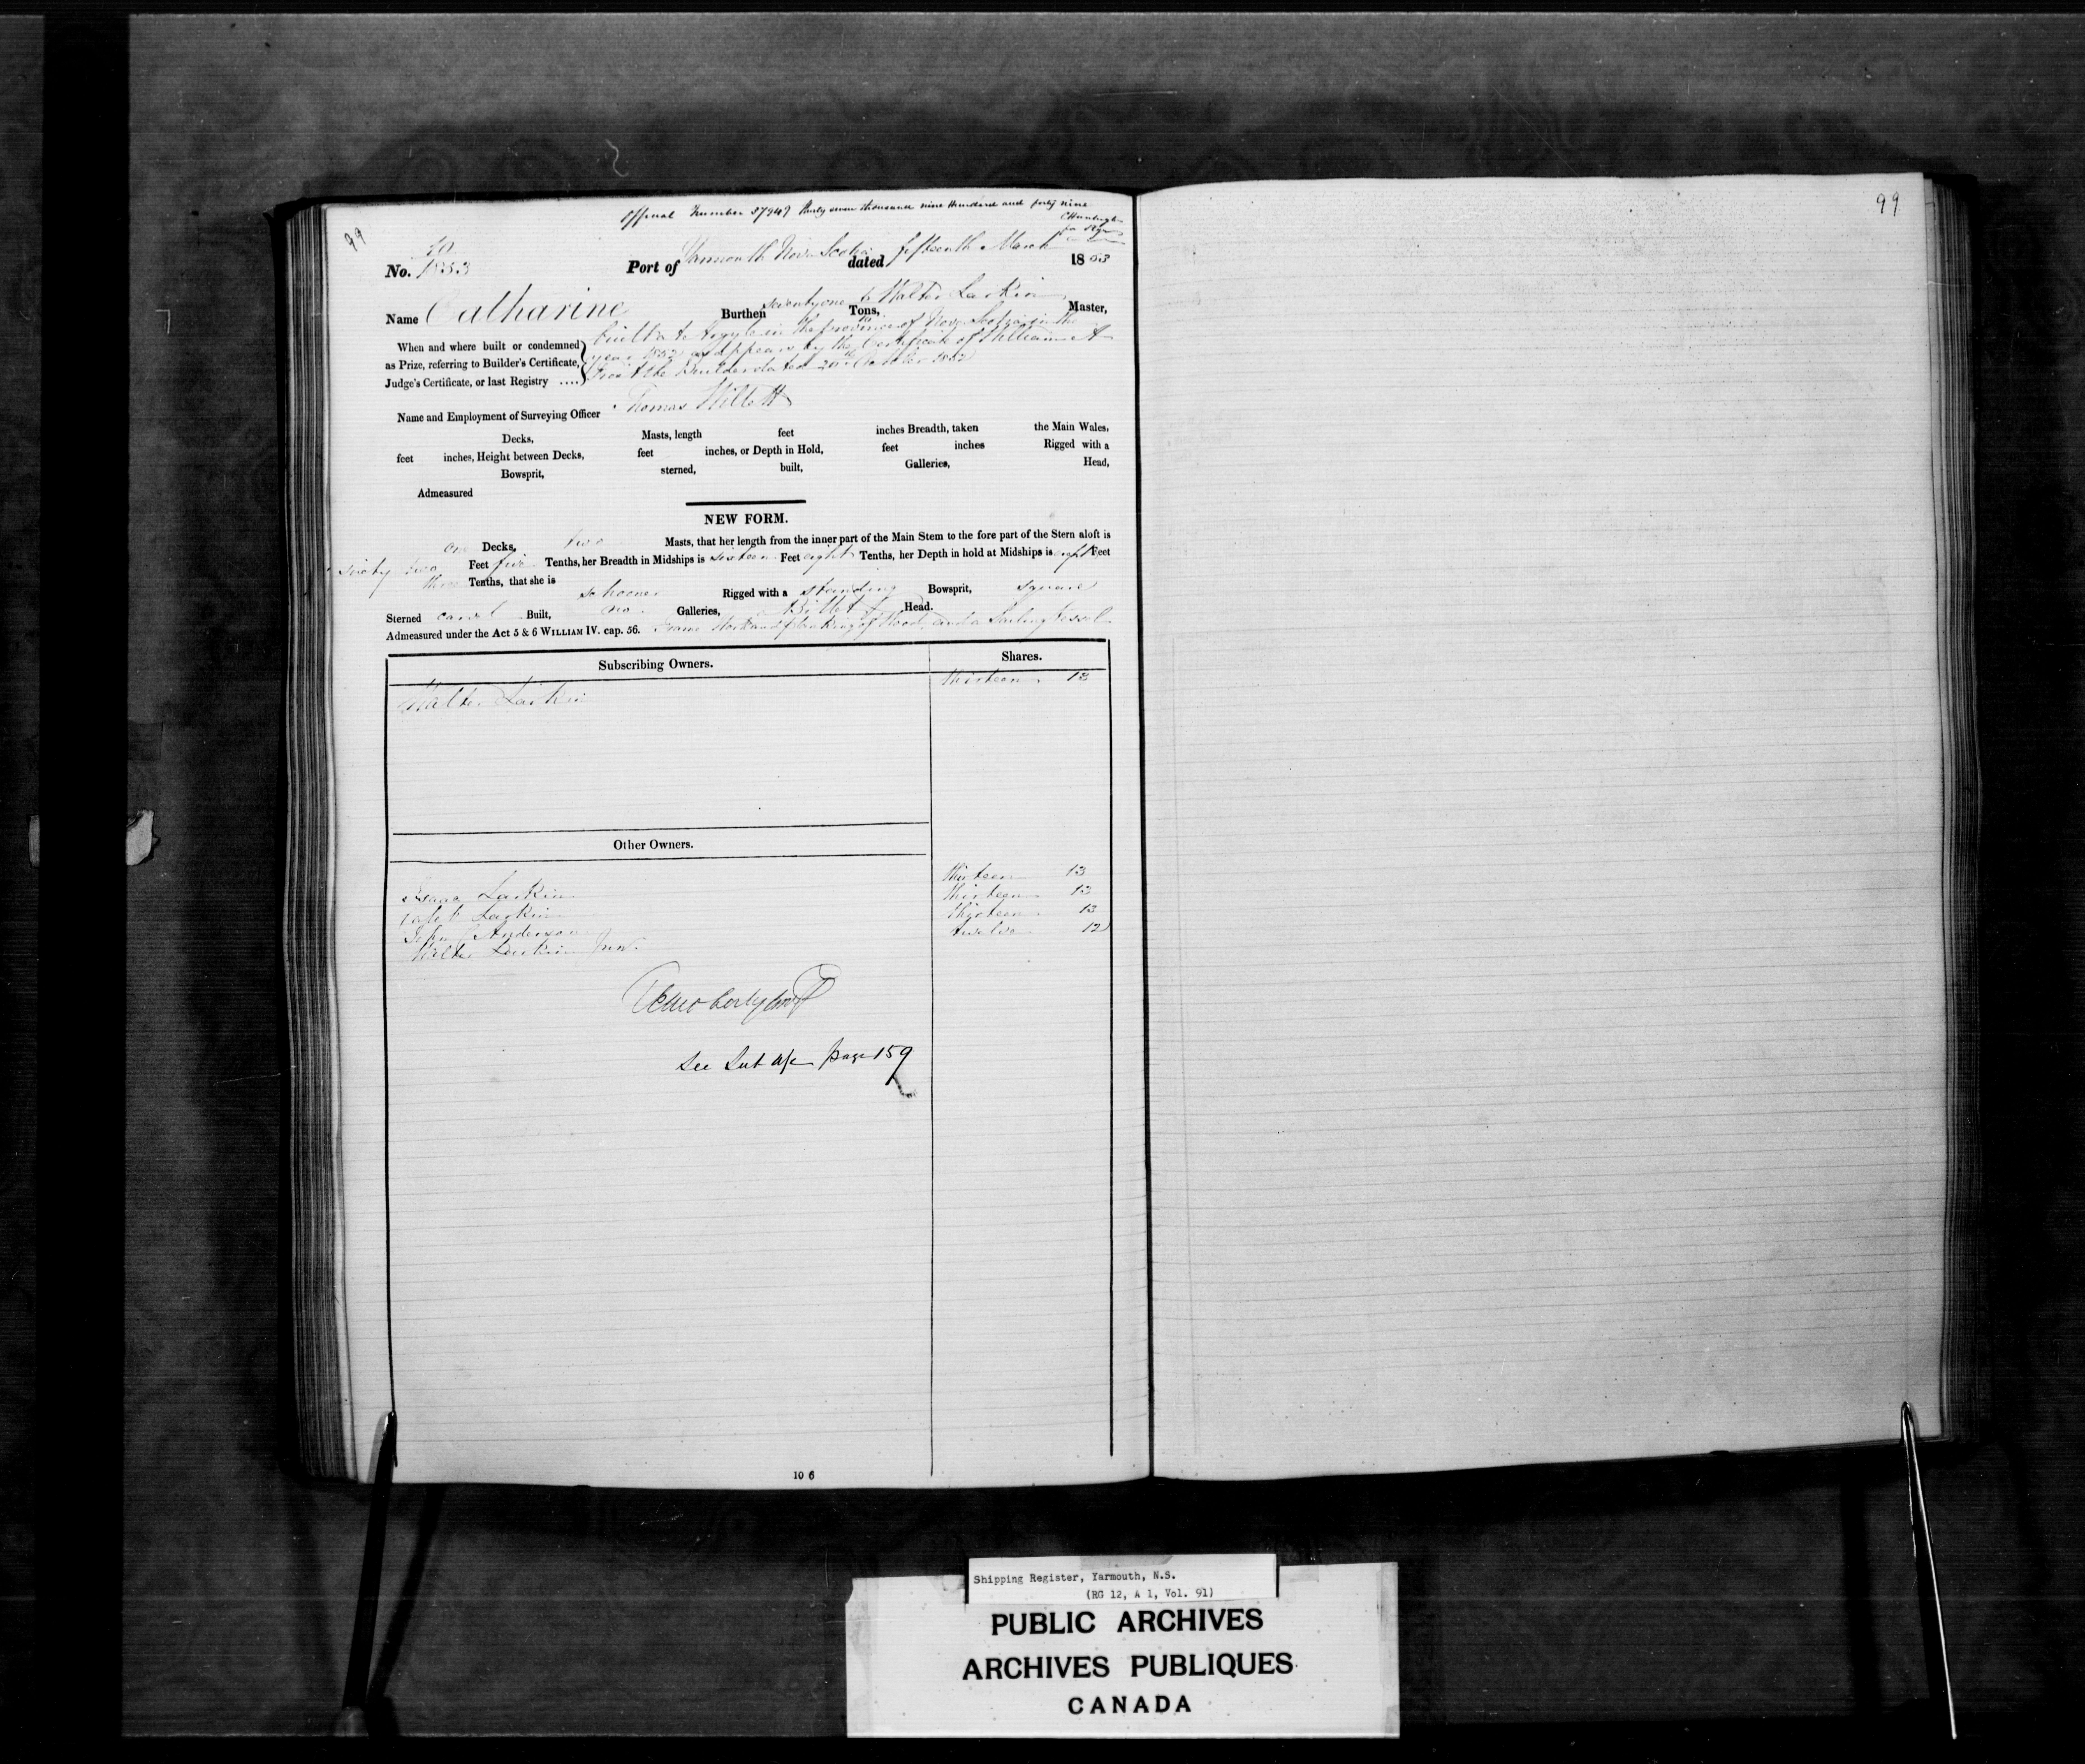 Official Number 37949 Thirty seven thousand nine Hundred and forty nine
99
99
No. 10
1853
Port of Yarmouth Nova Scotia dated fifteenth March 1853
Name Catharine Burthen seventy one Tons, Walter Larkin Master,
When and where built or condemned
as Prize, referring to Builder's Certificate,
Judge's Certificate, or last Registry ....
built at Argyle in the province of Nova Scotia in the
year 1852 as appears by the Certificate of William A
the Builder dated October 1852
Name and Employment of Surveying Officer Thomas Willett
Decks, Masts, length feet inches Breadth, taken the Main Wales,
feet inches, Height between Decks, feet inches, or Depth in Hold, feet inches Rigged with a
Bowsprit, sterned, built, Galleries, Head,
Admeasured
NEW FORM.
one Decks, two Masts, that her length from the inner part of the Main Stem to the fore part of the Stern aloft is
sixty two Feet five Tenths, her Breadth in Midships is sixteen Feet eight Tenths, her Depth in hold at Midships is eight Feet
three Tenths, that she is schooner Rigged with a standing Bowsprit, square
Sterned carvel Built, no Galleries, Billet Head.
Admeasured under the Act 5 & 6 WILLIAM IV. cap. 56. Frame Work and planking of Wood, and a Sailing Vessel
Subscribing Owners. Shares.
Walter Larkin thirteen 13
Other Owners.
Isaac Larkin thirteen 13
Larkin thirteen 13
John C Anderson thirteen 13
Walter Larkin Junr. twelve 12
See Sub a/c page 159
10 6
Shipping Register, Yarmouth, N.S.
(RG 12, A 1, Vol. 91)
PUBLIC ARCHIVES
ARCHIVES PUBLIQUES
CANADA